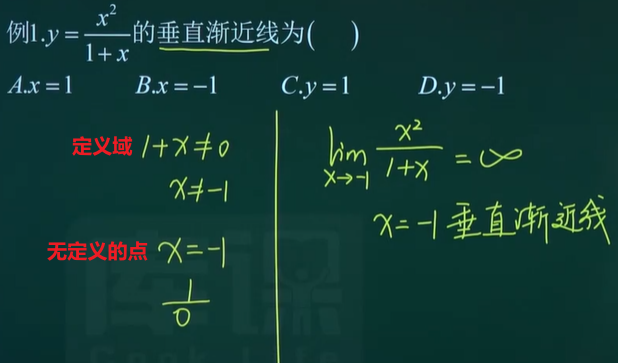 例1.y = x²/(1+x) 的垂直渐近线为( )
A.x = 1 B.x = −1 C.y = 1 D.y = −1
定义域 1+x≠0
x≠-1
无定义的点 x=-1
1/0
lim x→-1 x²/(1+x) = ∞
x=-1 垂直渐近线
库课